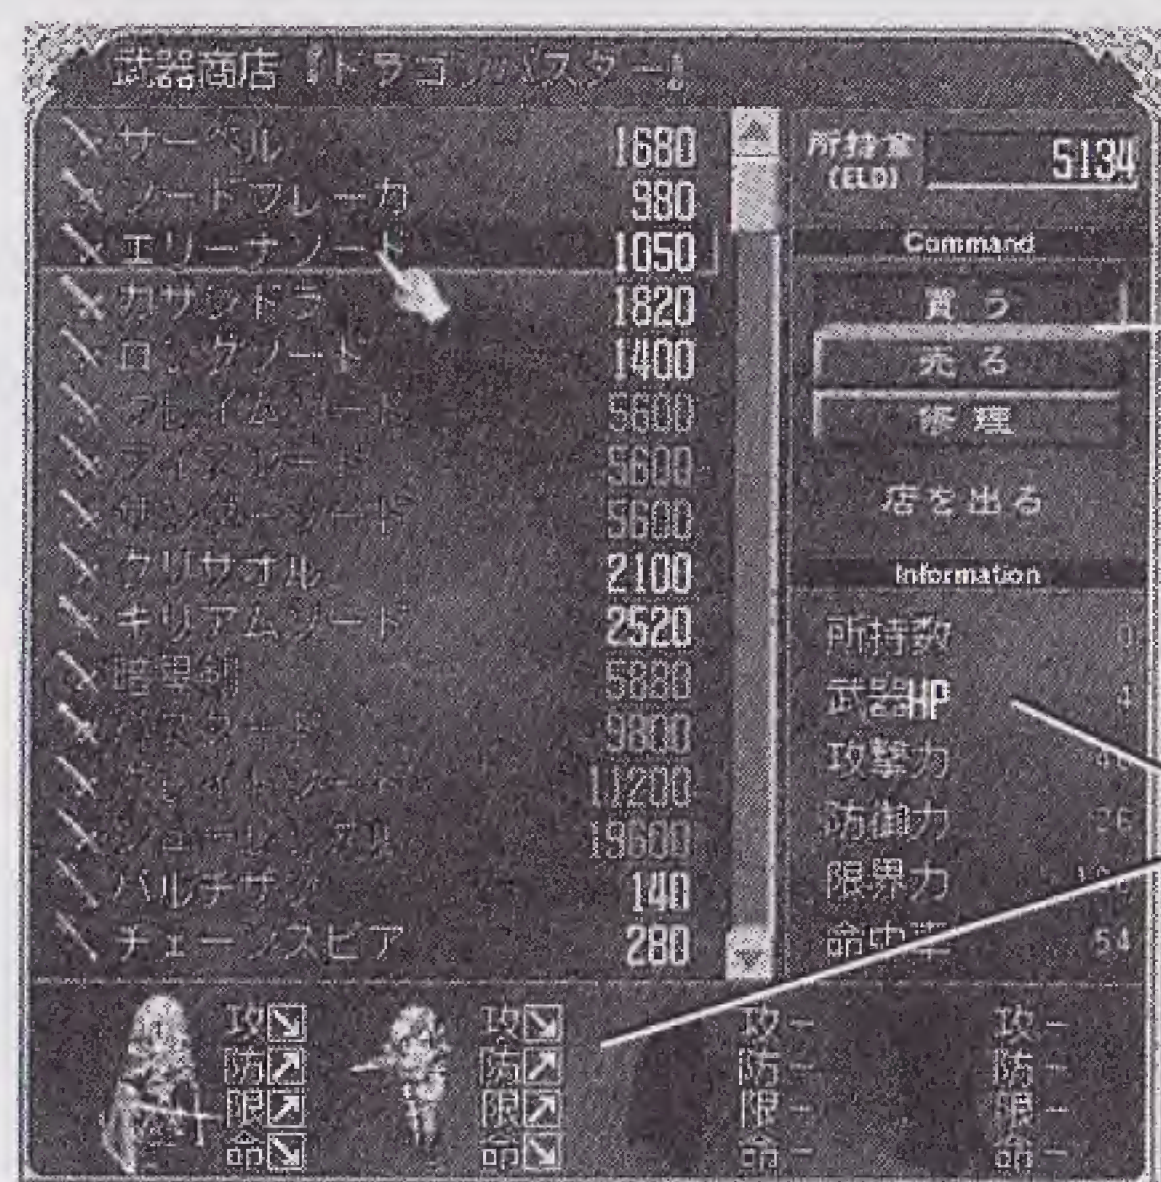 武器商店『ドラゴンバスター』
サーベル 1680
ソードブレーカ 980
エリーナソード 1050
カサンドラ 1820
ロングソード 1400
フレイムソード 5600
アイスソード 5600
サンダーソード 5600
クリサオル 2100
キリアムソード 2520
5880
9800
11200
19600
パルチザン 140
チェーンスピア 280
所持金(ELD) 5134
Command
買う
売る
修理
店を出る
Information
所持数 0
武器HP 4
攻撃力
防御力 26
限界力
命中率 54
攻↘ 攻↘ 攻- 攻-
防↗ 防↗ 防- 防-
限↗ 限↗ 限- 限-
命↘ 命↘ 命- 命-